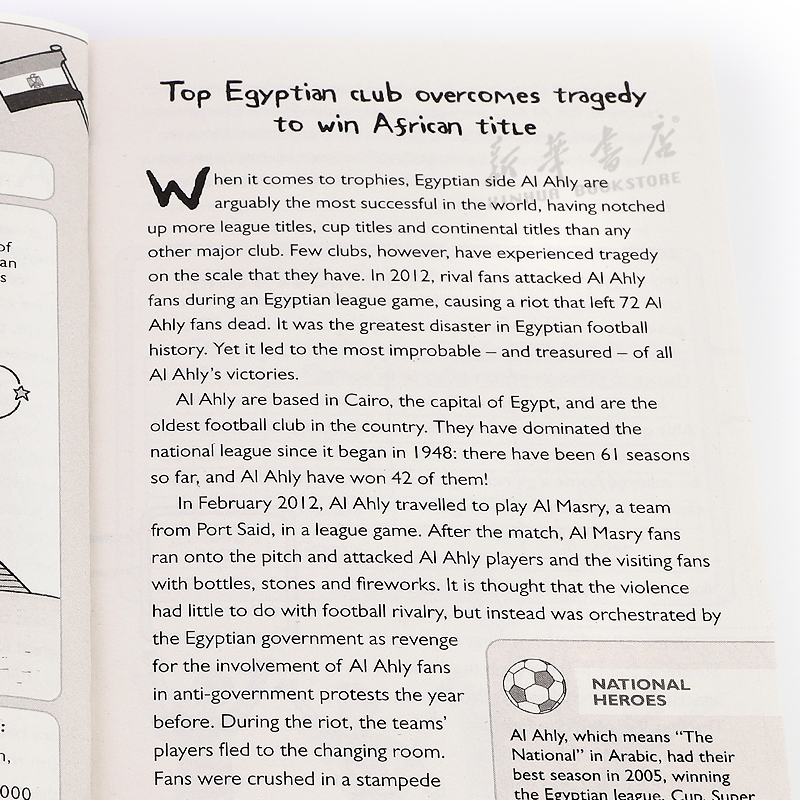 Top Egyptian club overcomes tragedy
to win African title
When it comes to trophies, Egyptian side Al Ahly are
arguably the most successful in the world, having notched
up more league titles, cup titles and continental titles than any
other major club. Few clubs, however, have experienced tragedy
on the scale that they have. In 2012, rival fans attacked Al Ahly
fans during an Egyptian league game, causing a riot that left 72 Al
Ahly fans dead. It was the greatest disaster in Egyptian football
history. Yet it led to the most improbable – and treasured – of all
Al Ahly's victories.
Al Ahly are based in Cairo, the capital of Egypt, and are the
oldest football club in the country. They have dominated the
national league since it began in 1948: there have been 61 seasons
so far, and Al Ahly have won 42 of them!
In February 2012, Al Ahly travelled to play Al Masry, a team
from Port Said, in a league game. After the match, Al Masry fans
ran onto the pitch and attacked Al Ahly players and the visiting fans
with bottles, stones and fireworks. It is thought that the violence
had little to do with football rivalry, but instead was orchestrated by
the Egyptian government as revenge
for the involvement of Al Ahly fans
in anti-government protests the year
before. During the riot, the teams'
players fled to the changing room.
Fans were crushed in a stampede
NATIONAL
HEROES
Al Ahly, which means "The
National" in Arabic, had their
best season in 2005, winning
the Egyptian league, Cup, Super
新華書店
XINHUA BOOKSTORE
of
an
s
:
n,
000